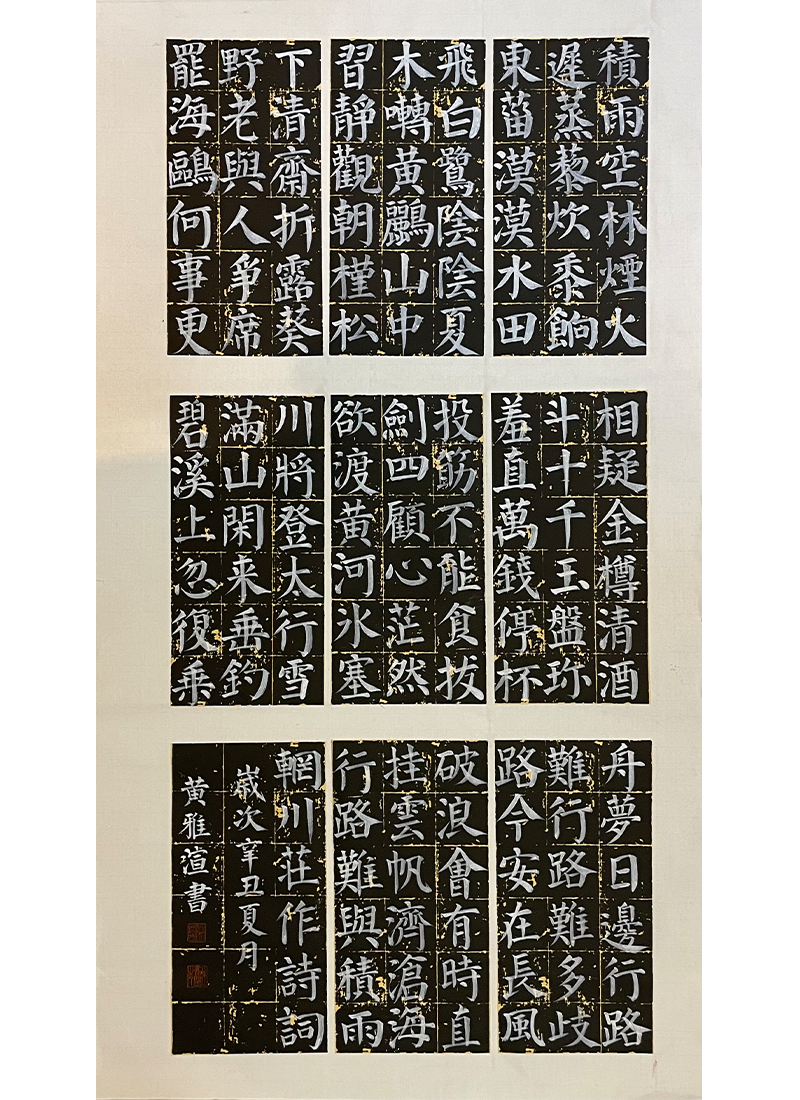 積雨空林煙火
遲蒸藜炊黍餉
東菑漠漠水田
飛白鷺陰陰夏
木囀黃鸝山中
習靜觀朝槿松
下清齋折露葵
野老與人爭席
罷海鷗何事更
相疑金樽清酒
斗十千玉盤珎
羞直萬錢停杯
投筯不能食拔
劍四顧心茫然
欲渡黃河氷塞
川將登太行雪
滿山閑来垂釣
碧溪上忽復乘
舟夢日邊行路
難行路難多歧
路今安在長風
破浪會有時直
挂雲帆濟滄海
行路難與積雨
輞川莊作詩詞
歲次辛丑夏月
黃雅渲書